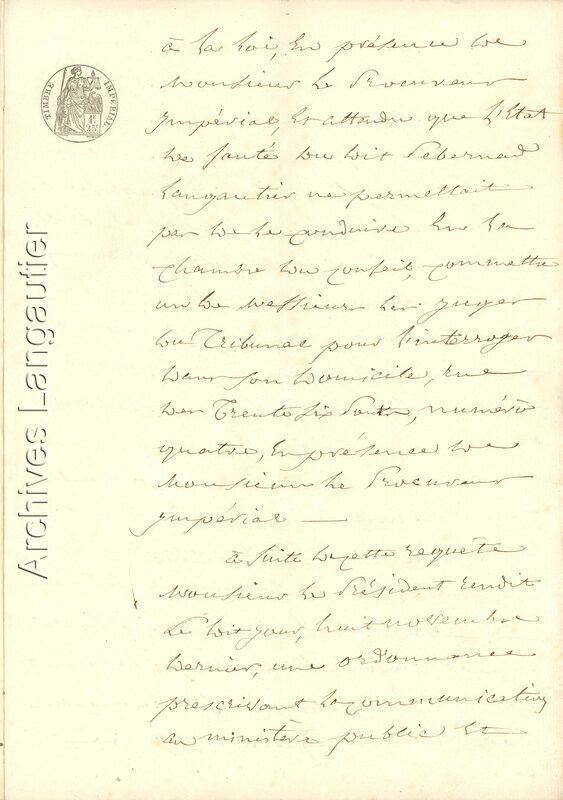 à la loi, En présence de
Monsieur le Procureur
Impérial, Et attendu que l'Etat
de santé du dit Pébernad
Langautier ne permettait
pas de le conduire En la
chambre du conseil, commettre
un de Messieurs les juges
du Tribunal pour l'interroger
dans son domicile, rue
des Trente six Ponts, numéro
quatre, En présence de
Monsieur le Procureur
Impérial —
à suite de cette requête
Monsieur le Président rendit
Le dit jour, huit novembre
dernier, une ordonnance
prescrivant la communication
au ministère public et
TIMBRE IMPERIAL
1F.
25c.
Archives Langautier